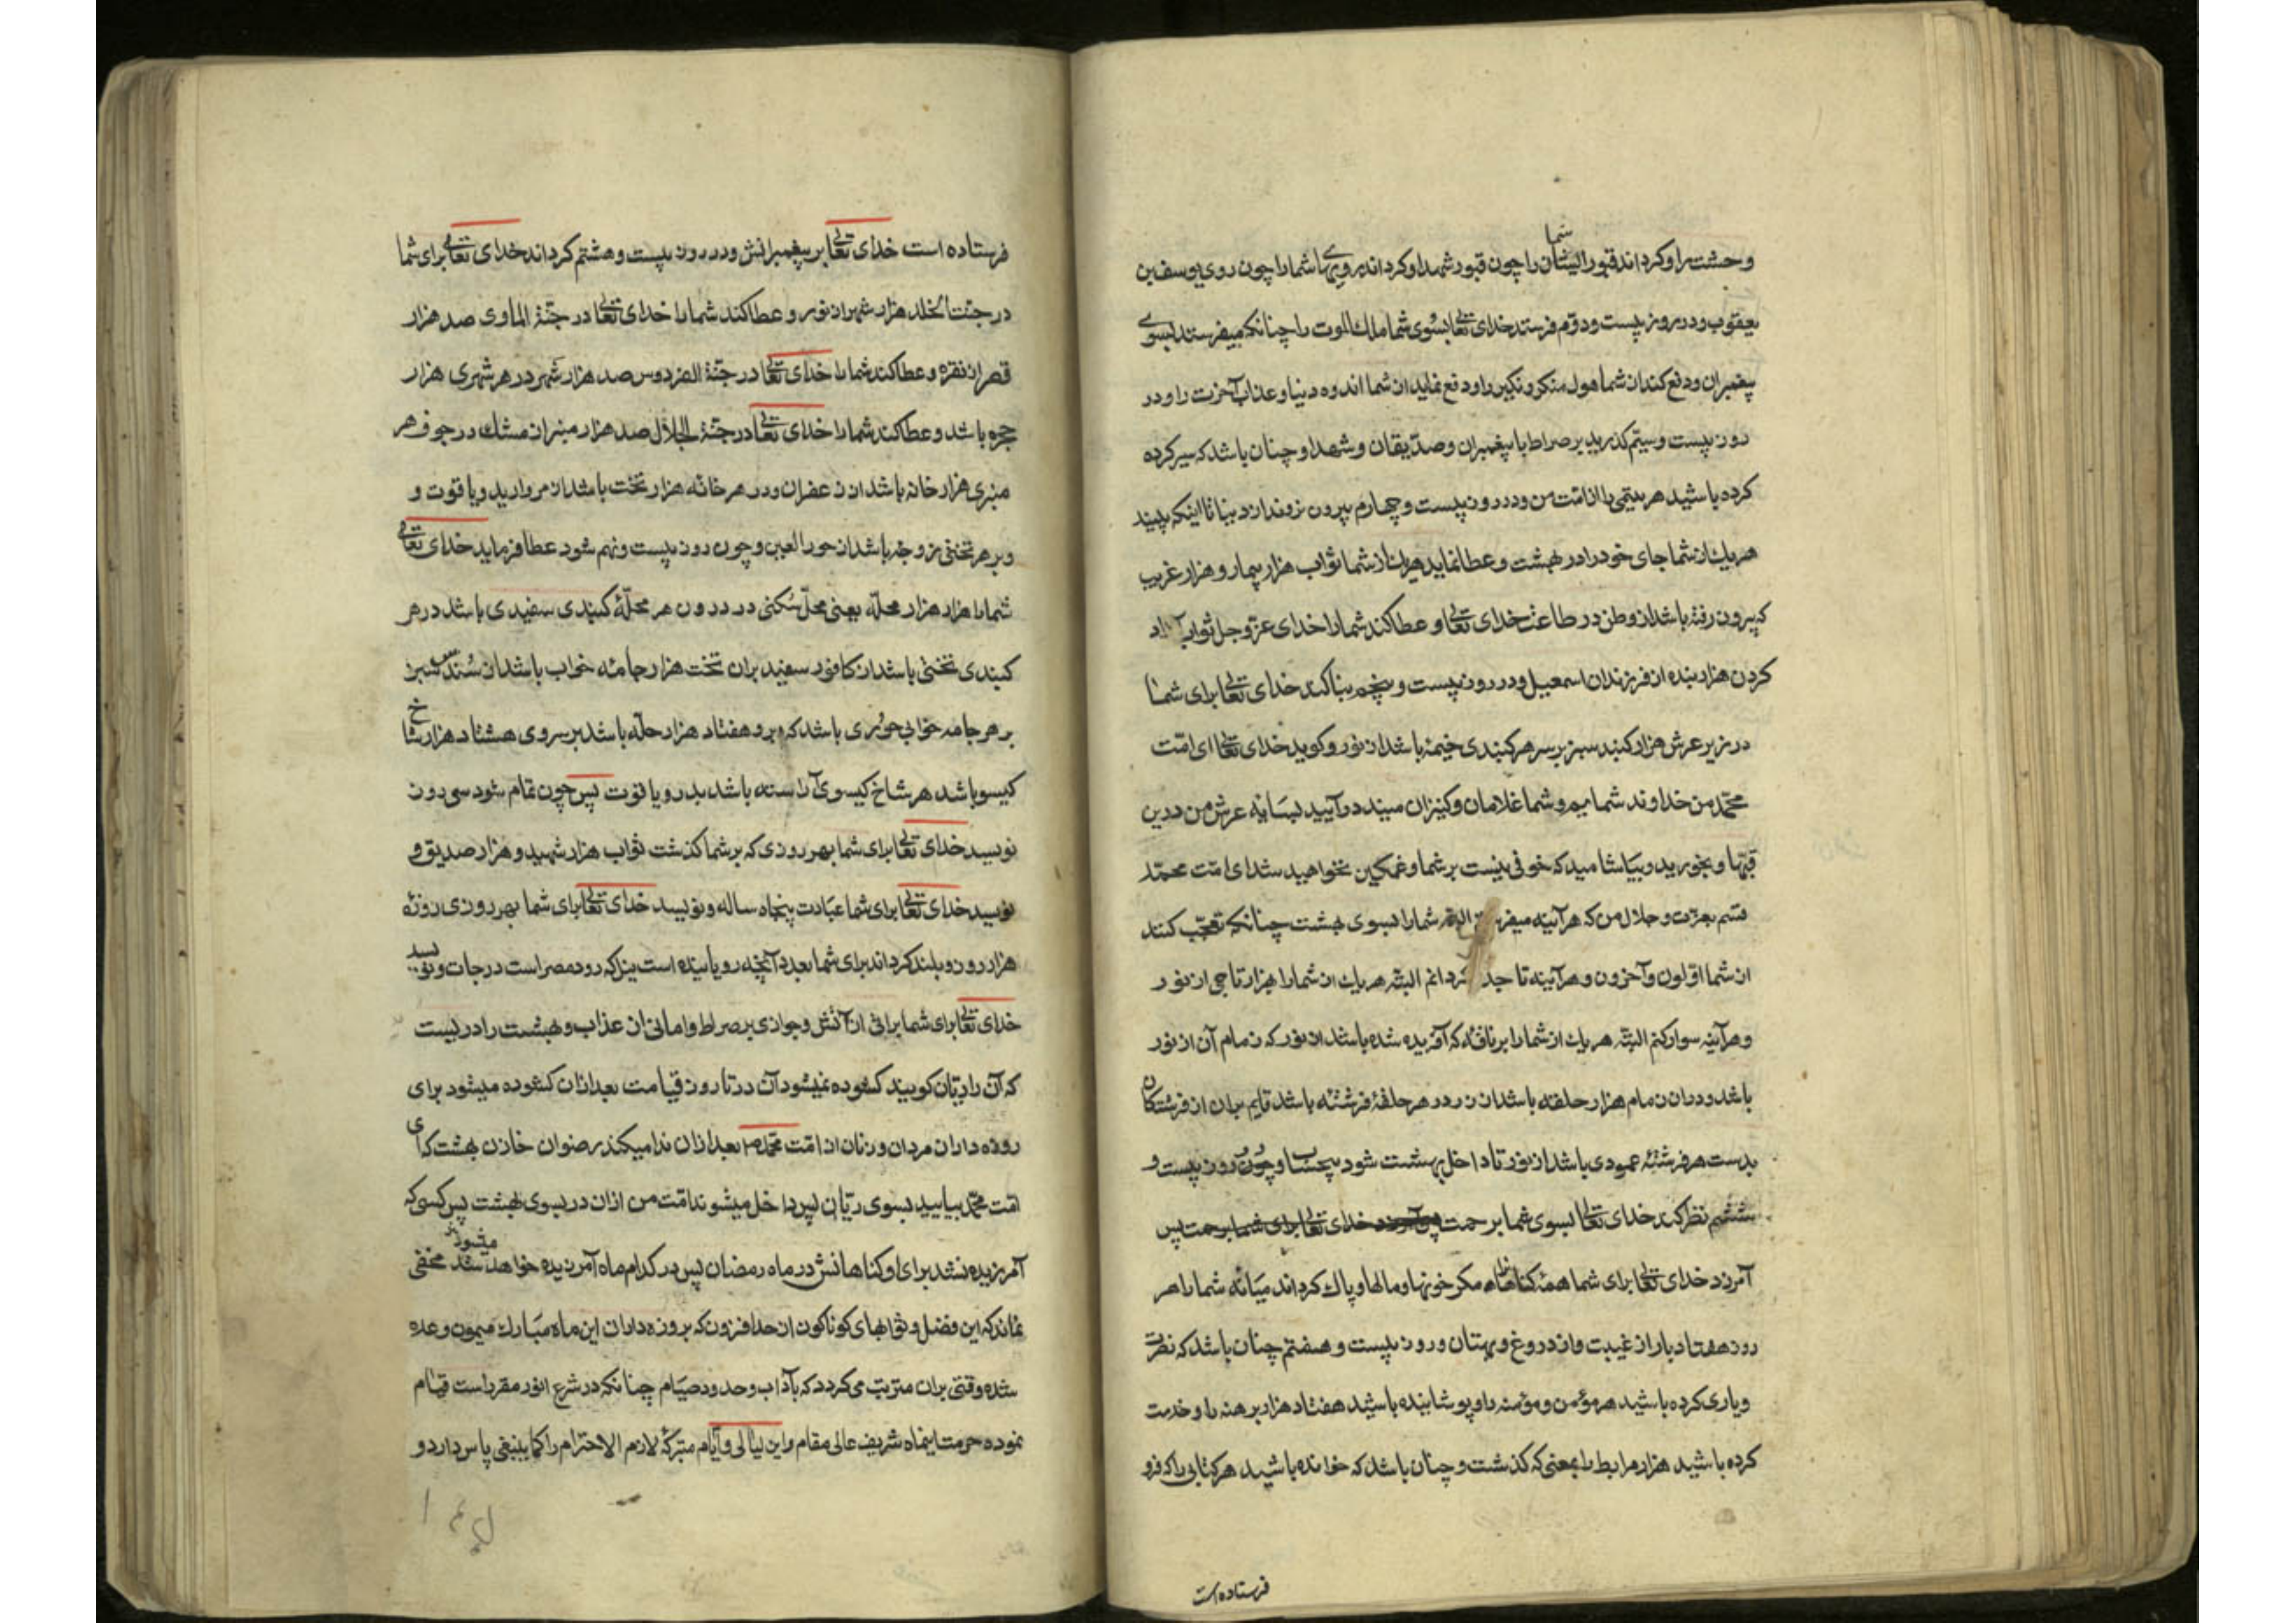 شما
وحشت را و کرداند قبور ایشان را چون قبور شهدا و کرداند رویهای شما را چون روی یوسف بن
یعقوب و در روز بیست و دوّم فرستد خدای تعالی بسوی شما ملك الموت را چنانکه میفرستد بسوی
پیغمبران و دفع کند از شما هول منکر و نکیر را و دفع نماید از شما اندوه دنیا و عذاب آخرت را و در
روز بیست و سیّم کذرید بر صراط با پیغمبران و صدّیقان و شهدا و چنان باشد که سیر کرده
کرده باشید هر یتیمی را از امّت من و در روز بیست و چهارم بیرون نروند از دنیا تا اینکه ببیند
هر یك از شما جای خود را در بهشت و عطا نماید هریك از شما ثواب هزار بیمار و هزار غریب
که بیرون رفته باشد از وطن در طاعت خدای تعالی و عطا کند شما را خدای عزّ و جل ثواب آزاد
کردن هزار بنده از فرزندان اسمعیل و در روز بیست و پنجم بنا کند خدای تعالی برای شما
در زیر عرش هزار کنبد سبز بر سر هر کنبدی خیمهٔ باشد از نور و کوید خدای تعالی ای امّت
محمّد من خداوند شمایم و شما غلامان و کنیزان منید در آیید بسایهٔ عرش من درین
قبّها و بخورید و بیاشامید که خوفی نیست بر شما و غمکین نخواهید شد ای امّت محمّد
قسم بعزّت و جلال من که هر آینه میفرستم البته شما را بسوی بهشت چنانکه تعجّب کنند
از شما اوّلون و آخرون و هر آینه تاجدار کردانم البتّه هر یك از شما را بهزار تاجی از نور
و هر آینه سوار کنم البتّه هر یك از شما را بر ناقهٔ که آفریده شده باشد از نور که زمام آن از نور
باشد و در ان زمام هزار حلقه باشد از زر و در هر حلقهٔ فرشتهٔ باشد قایم بران از فرشتکان
بدست هر فرشتهٔ عمودی باشد از نور تا داخل بهشت شود بیحساب و چون روز بیست و
ششم نظر کند خدای تعالی بسوی شما برحمت پس آمرزد خدای تعالی برای شما برحمت پس
آمرزد خدای تعالی برای شما همهٔ کناهان را مکر خونها و مالها و پاك کرداند میانهٔ شما را هر
روز هفتاد بار از غیبت و از دروغ و بهتان و روز بیست و هفتم چنان باشد که نصرت
و یاری کرده باشید هر مؤمن و مؤمنه را و پوشانیده باشید هفتاد هزار برهنه را و خدمت
کرده باشید هزار مرابط را بمعنی که کذشت و چنان باشد که خوانده باشید هر کتابی را که فرو
فرستاده است
فرستاده است خدای تعالی بر پیغمبرانش و در روز بیست و هشتم کرداند خدای تعالی برای شما
در جنّت الخلد هزار شهر از نور و عطا کند شما را خدای تعالی در جنّة الماوی صد هزار
قصر از نقره و عطا کند شما را خدای تعالی در جنّة الفردوس صد هزار شهر در هر شهری هزار
حجره باشد و عطا کند شما را خدای تعالی در جنّة الجلال صد هزار منبر از مشك در جوف هر
منبری هزار خانه باشد از زعفران و در هر خانهٔ هزار تخت باشد از مروارید و یاقوت و
و بر هر تختی زوجهٔ باشد از حور العین و چون روز بیست و نهم شود عطا فرماید خدای تعالی
شما را هزار هزار محلّه یعنی محلّ سُکنی در درون هر محلّهٔ کنبدی سفیدی باشد در هر
کنبدی تختی باشد از کافور سفید بران تخت هزار جامهٔ خواب باشد از سُندس سبز
بر هر جامه خوابی حوری باشد که برو هفتاد هزار حلّه باشد بر سر وی هشتاد هزار شاخ
کیسو باشد هر شاخ کیسوی آراسته باشد بدر و یاقوت پس چون تمام شود سی روز
نویسد خدای تعالی برای شما بهر روزی که بر شما کذشت ثواب هزار شهید و هزار صدیق و
نویسد خدای تعالی برای شما عبادت پنجاه ساله و نویسد خدای تعالی برای شما بهر روزی روزهٔ
هزار روز و بلند کرداند برای شما بعدد آنچه رویانیده است نیل که رود مصر است درجات و نویسد
خدای تعالی برای شما براتی از آتش و جوازی بر صراط و امانی از عذاب و بهشت را دریست
که آن را ریّان کویند کشوده نمیشود آن در تا روز قیامت بعد ازان کشوده میشود برای
روزه داران مردان و زنان از امّت محمّد ص بعد ازان ندا میکند رضوان خازن بهشت که ای
امّت محمّد بیایید بسوی ریّان پس داخل میشوند امّت من ازان در بسوی بهشت پس کسی که
آمرزیده نشد برای او کناهانش در ماه رمضان پس در کدام ماه آمرزیده خواهد شد مخفی
نماند که این فضل و ثوابهای کوناکون از حد افزون که بروزه داران این ماه مبارك میمون وعده
شده وقتی بران مترتب می کردد که بآداب و حدود صیام چنانکه در شرع انور مقرر است قیام
نموده حرمت اینماه شریف عالی مقام و این لیالی و ایّام متبرکهٔ لازم الاحترام را کما ینبغی پاس دارد و